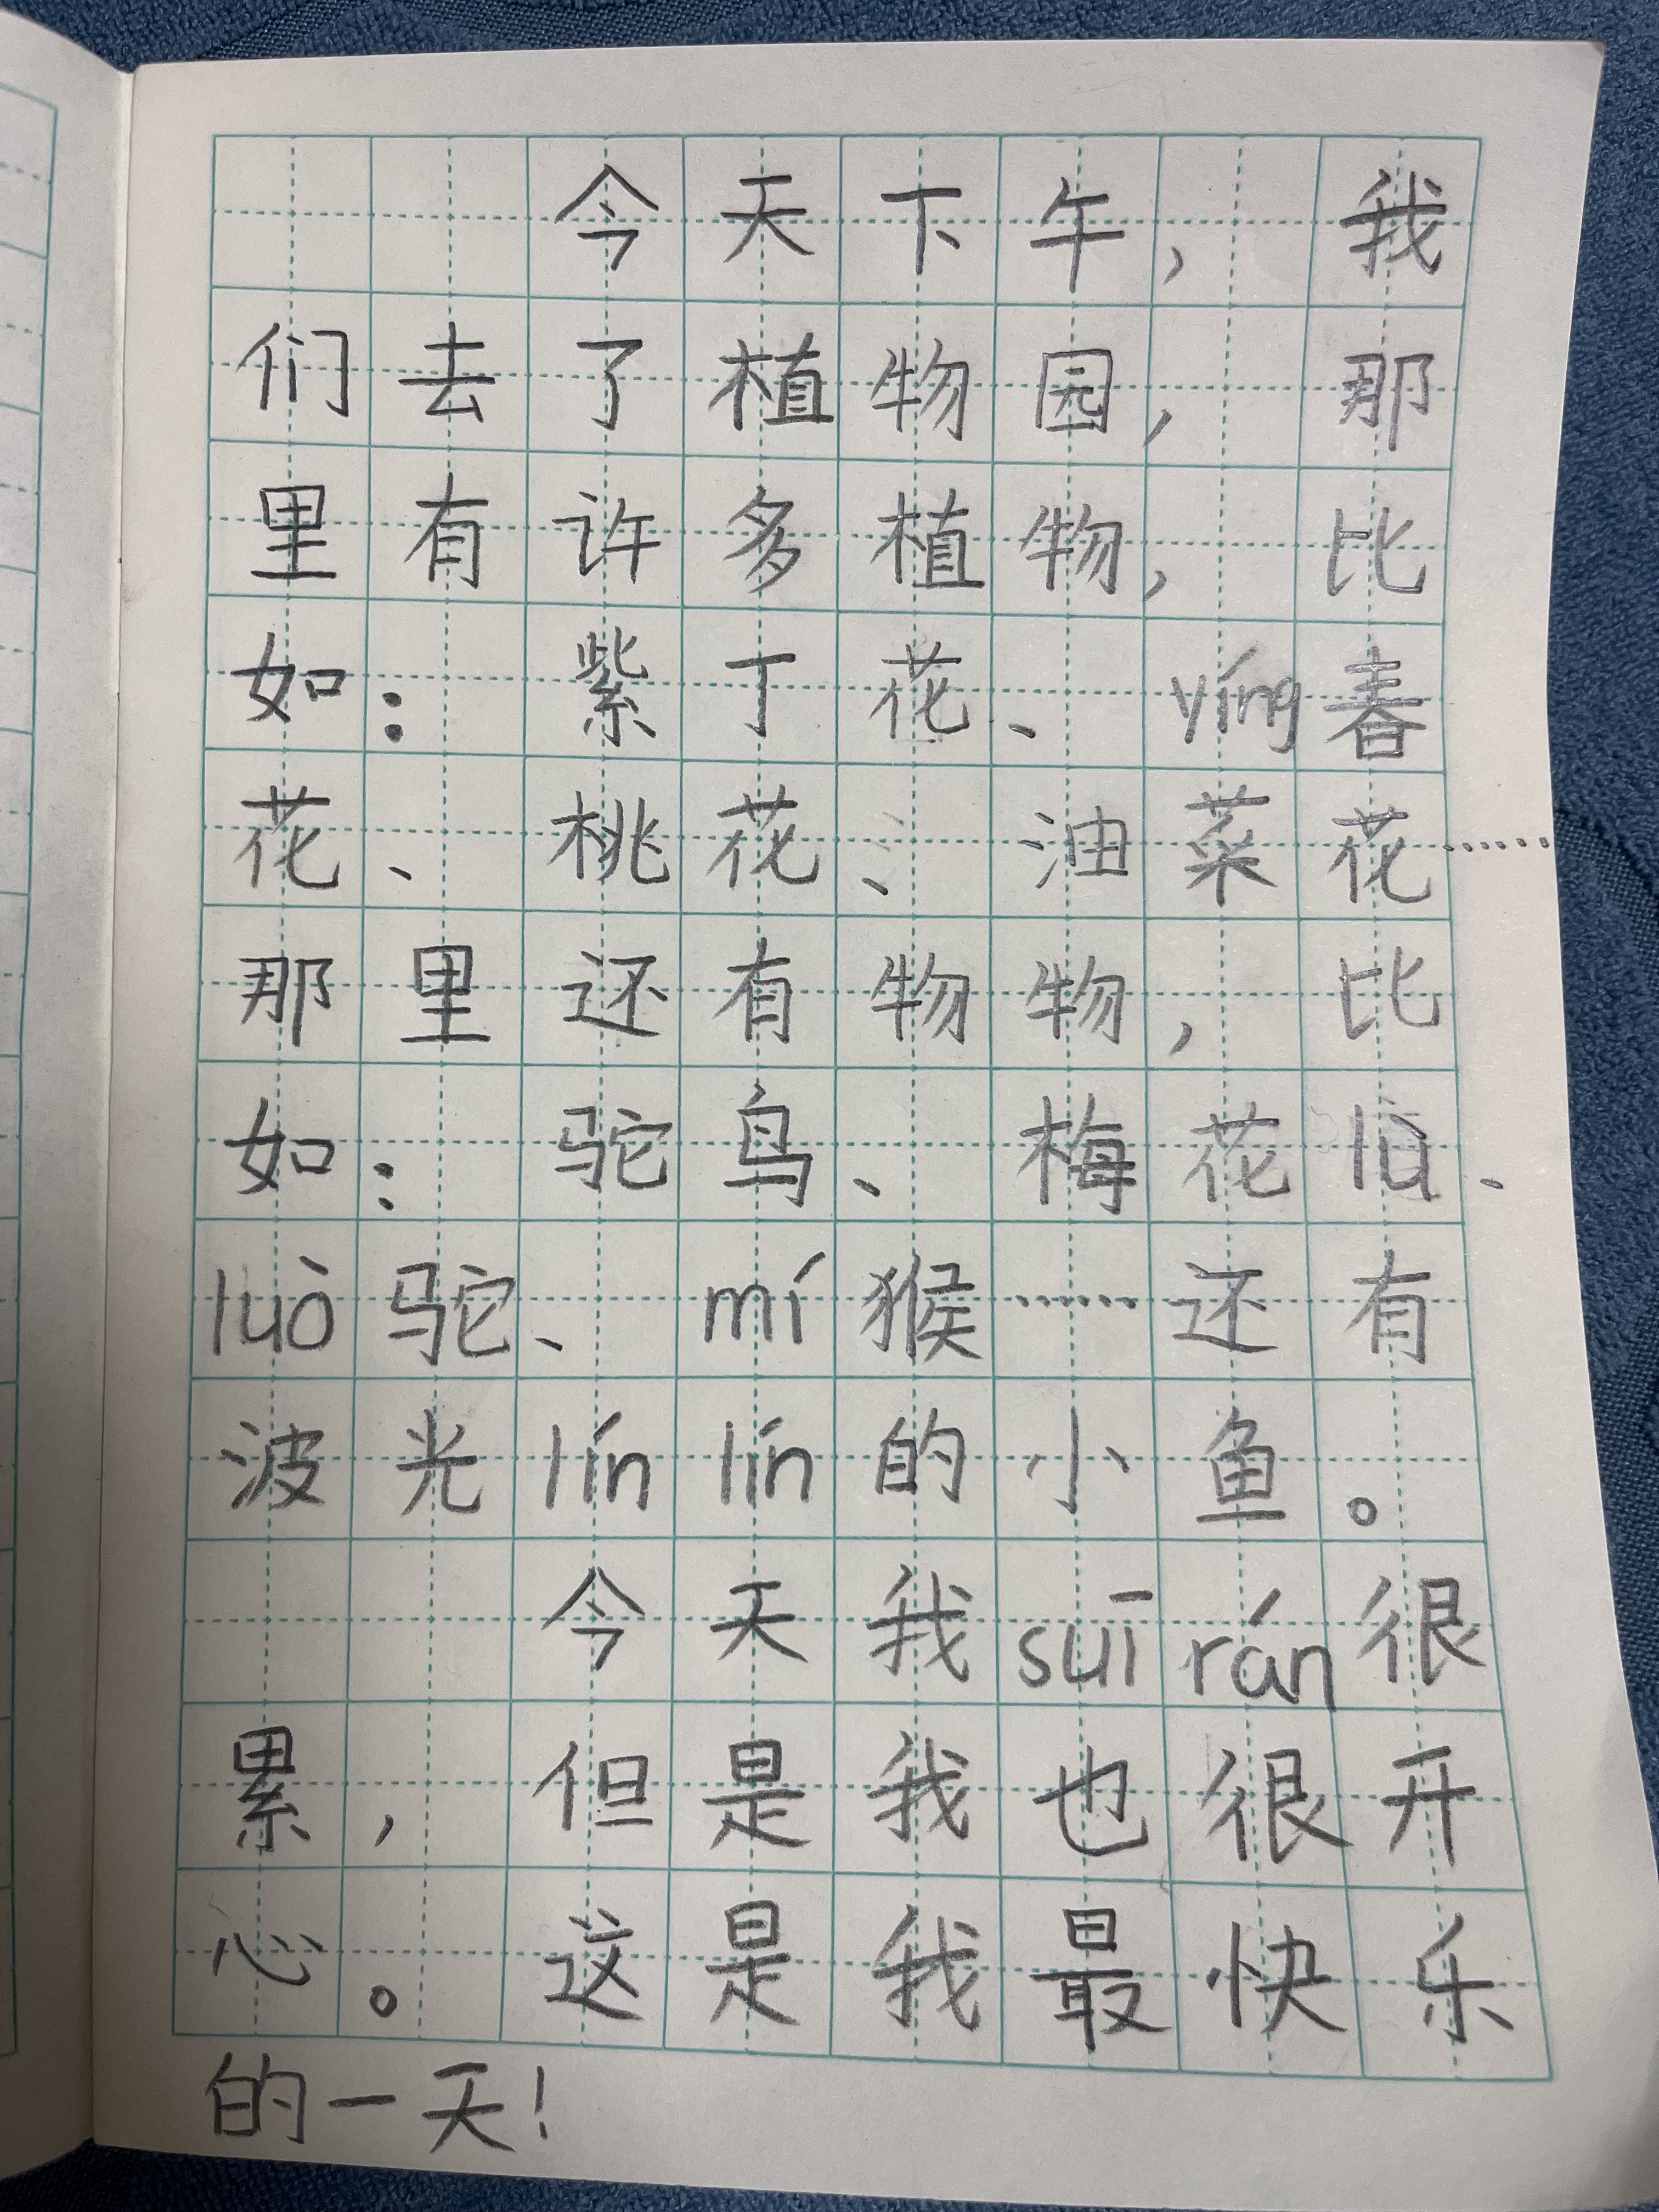 今天下午，我
们去了植物园，那
里有许多植物，比
如：紫丁花、yíng春
花、桃花、油菜花……
那里还有物物，比
如：驼鸟、梅花lù、
luò驼、mí猴……还有
波光lín lín的小鱼。
今天我suī rán很
累，但是我也很开
心。这是我最快乐
的一天！